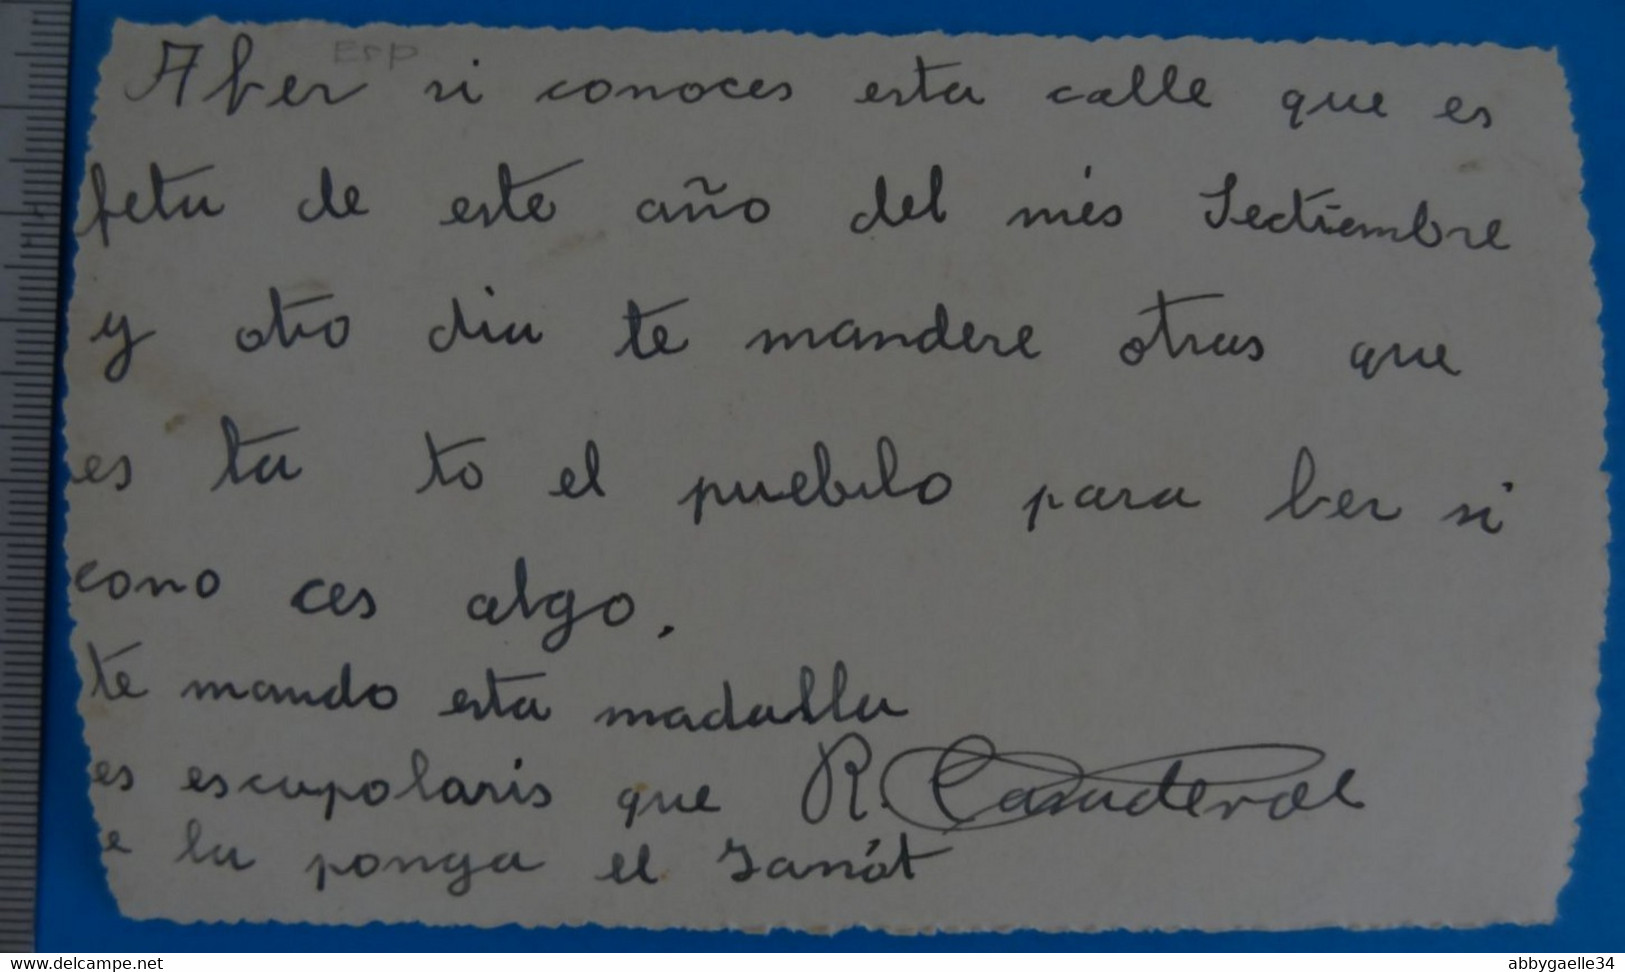 Esp
Aber si conoces esta calle que es
feta de este año del més Sectiembre
y otro dia te mandere otras que
es ta to el pueblo para ber si
cono ces algo.
te mando esta madalla
es escupolaris que R.
e la ponga el Sanót
www.delcampe.net
abbygaelle34